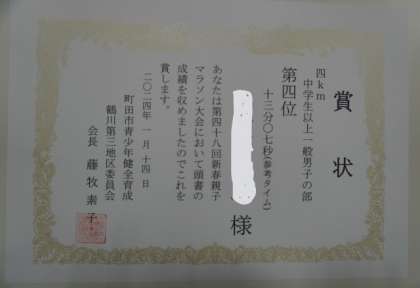 賞状
四km 中学生以上一般男子の部
第四位
十三分〇七秒(参考タイム)
様
あなたは第四十八回新春親子
マラソン大会において頭書の
成績を収めましたのでこれを
賞します。
二〇二四年 一月 十四日
町田市青少年健全育成
鶴川第三地区委員会
会長 藤牧素子